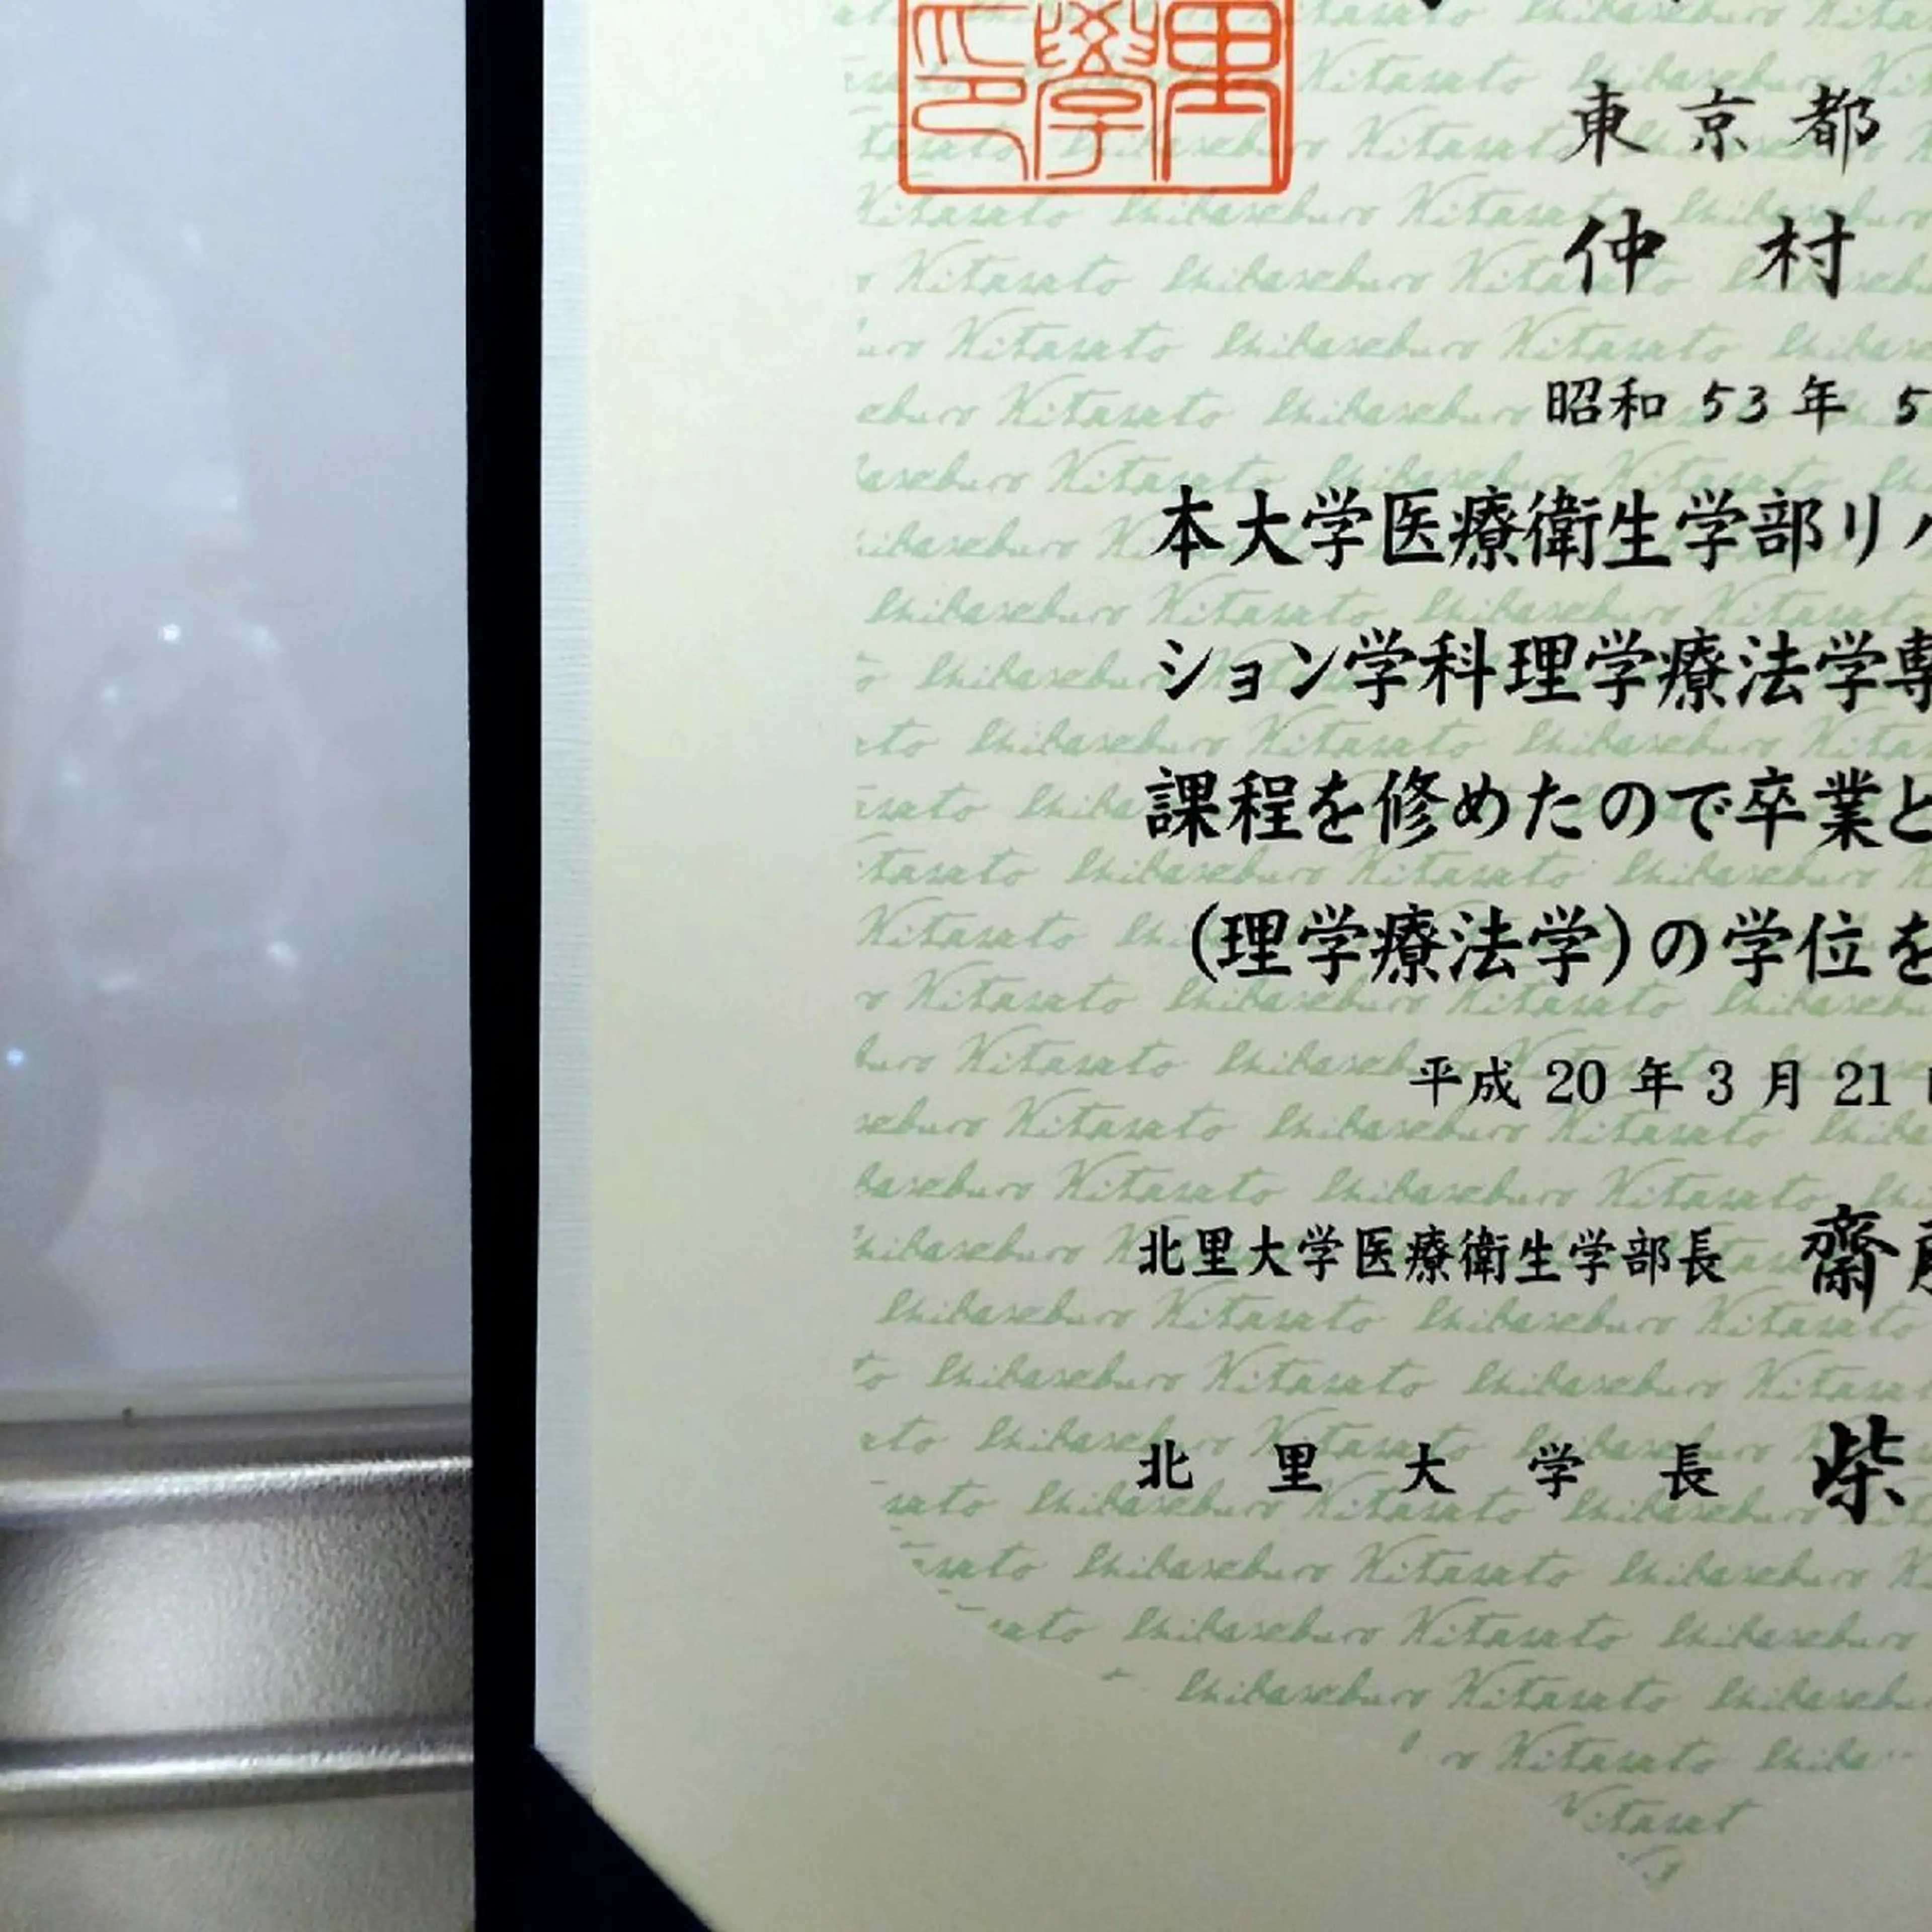 東京都
仲村
昭和53年5
本大学医療衛生学部リハ
ション学科理学療法学専
課程を修めたので卒業と
(理学療法学)の学位を
平成20年3月21日
北里大学医療衛生学部長 齋藤
北里大学長 柴
Shibasaburo Kitasato